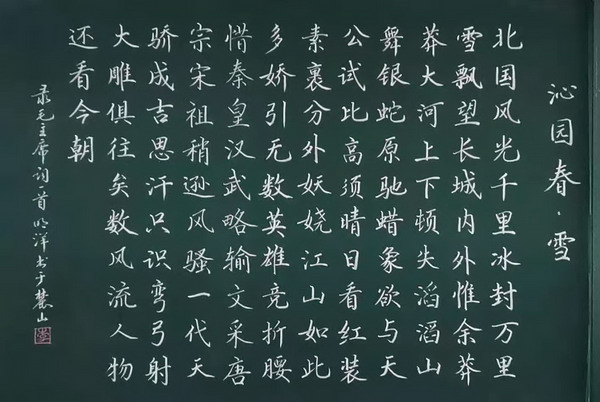 沁园春·雪
北国风光千里冰封万里
雪飘望长城内外惟余莽
莽大河上下顿失滔滔山
舞银蛇原驰蜡象欲与天
公试比高须晴日看红装
素裹分外妖娆江山如此
多娇引无数英雄竞折腰
惜秦皇汉武略输文采唐
宗宋祖稍逊风骚一代天
骄成吉思汗只识弯弓射
大雕俱往矣数风流人物
还看今朝
录毛主席词一首 明洋书于麓山